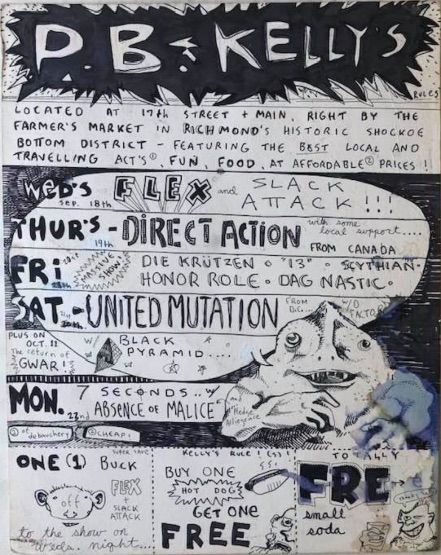 P.B. KELLY'S
RULES
LOCATED AT 17th STREET + MAIN, RIGHT BY THE
FARMER'S MARKET IN RICHMOND'S HISTORIC SHOCKOE
BOTTOM DISTRICT - FEATURING THE BEST LOCAL AND
TRAVELLING ACT'S①, FUN, FOOD, AT AFFORDABLE② PRICES!
WED'S FLEX and SLACK
Sep. 18th ATTACK!!!
THUR'S - DIRECT ACTION with some
local support....
19th FROM CANADA
FRI DIE KRÜTZEN • "13" • SCYTHIAN •
HONOR ROLE • DAG NASTIC •
SAT. - UNITED MUTATION FROM
D.C.
PLUS ON
OCT. 11
The return of
GWAR!
W/ BLACK
PYRAMID....
MON. 7 SECONDS... W/
23rd ABSENCE OF MALICE
① of debauchery ② CHEAP!
ONE (1) BUCK
off
FLEX
SLACK
ATTACK
to the show on
Weds. night...
KELLY'S RULE!
BUY ONE
HOT DOG
GET ONE
FREE
TOTALLY
FRE
small
soda